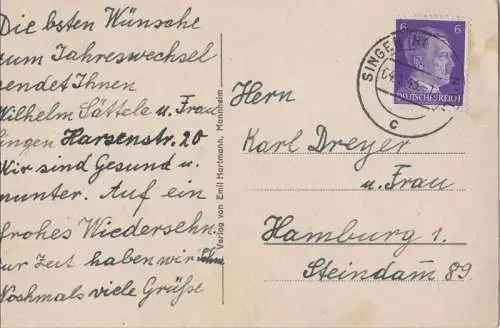 Die bsten Wünsche
zum Jahreswechsel
sendet Ihnen
Wilhelm Sättele u. Frau
Singen Harsenstr. 20
Wir sind Gesund u.
munter. Auf ein
frohes Wiedersehn.
zur Zeit haben wir
Nochmals viele Grüße
Verlag von Emil Hartmann, Mannheim
SINGEN
c
6
6
DEUTSCHES REICH
Herrn
Karl Dreyer
u. Frau
Hamburg 1.
Steindam̄ 89.